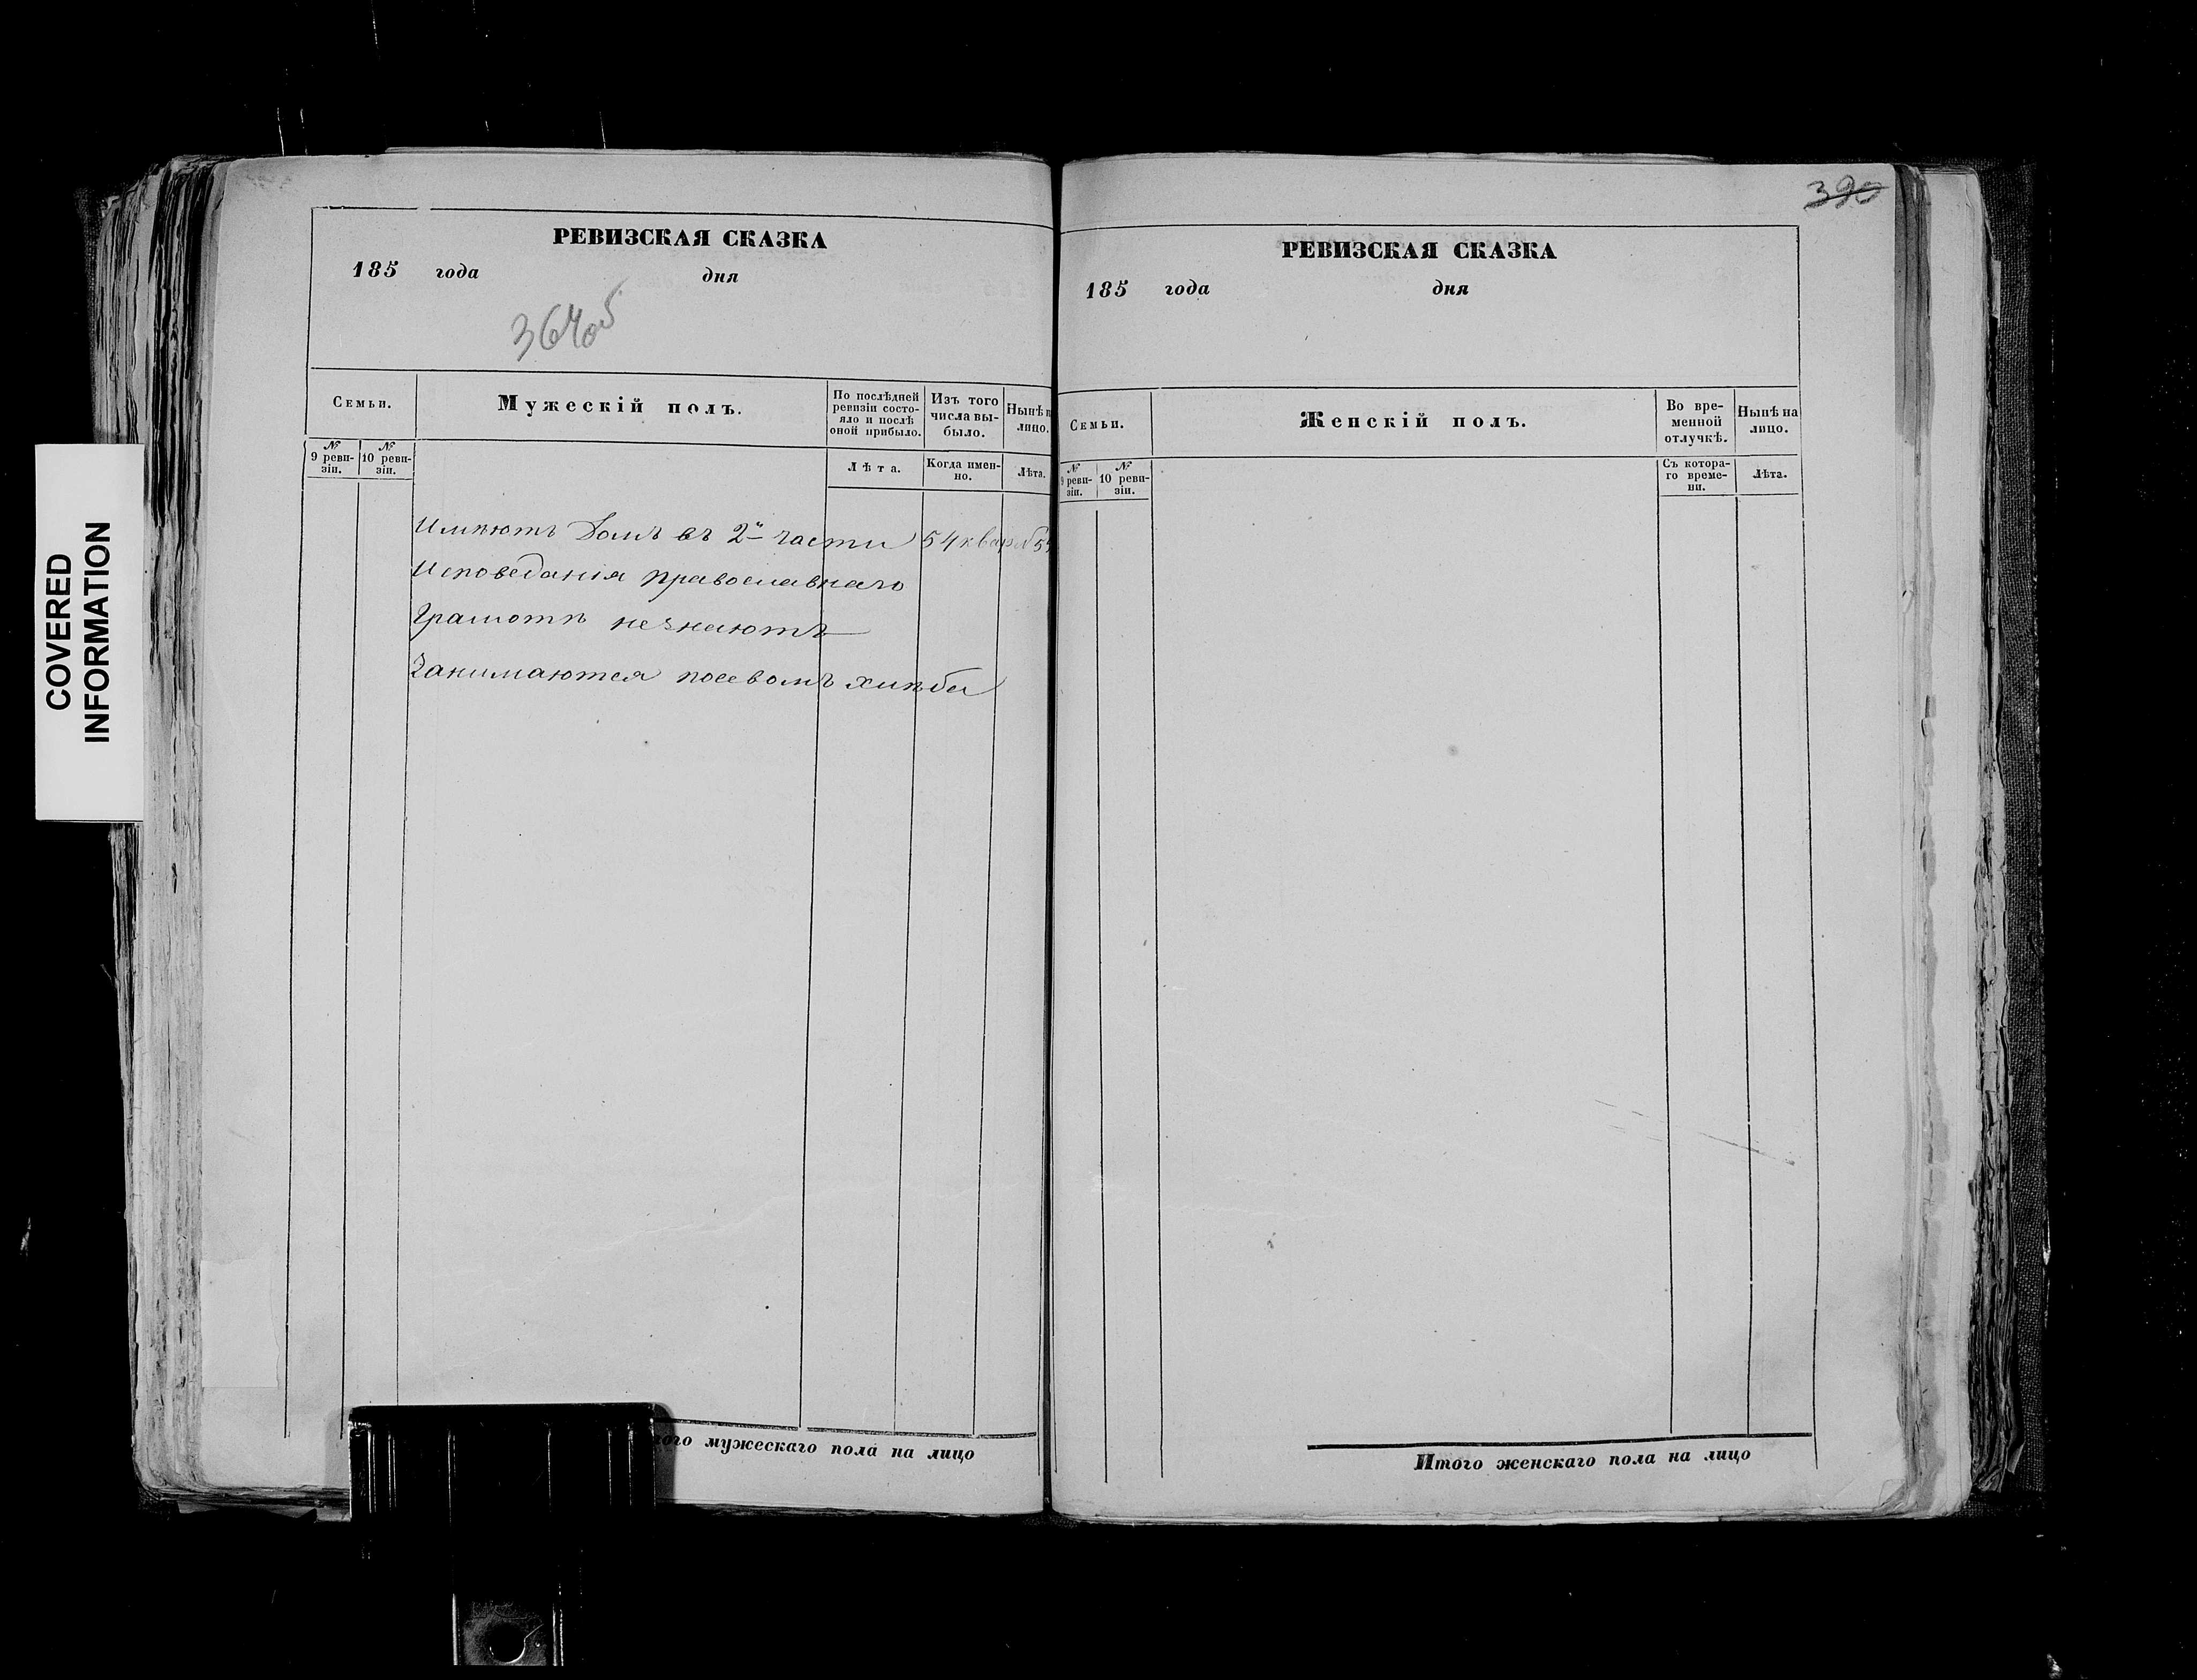 РЕВИЗСКАЯ СКАЗКА
185 года дня
364об
Семьи.
Мужескій полъ.
По послѣдней ревизіи состо-
яло и послѣ
оной прибыло.
Изъ того
числа вы-
было.
Нынѣ н
лицо.
№
9 реви-
зіи.
№
10 реви-
зіи.
Лѣта.
Когда имен-
но.
Лѣта.
Имѣютъ домъ въ 2й части 54 квар № 5
Исповеданія православнаго
Грамотѣ незнаютъ
Занимаются посевомъ хлѣба
ого мужескаго пола на лицо
390
РЕВИЗСКАЯ СКАЗКА
185 года дня
Семьи.
Женскій полъ.
Во вре-
менной
отлучкѣ.
Нынѣ на
лицо.
№
9 реви-
зіи.
№
10 реви-
зіи.
Съ котора-
го време-
ни.
Лѣта.
Итого женскаго пола на лицо
COVERED
INFORMATION